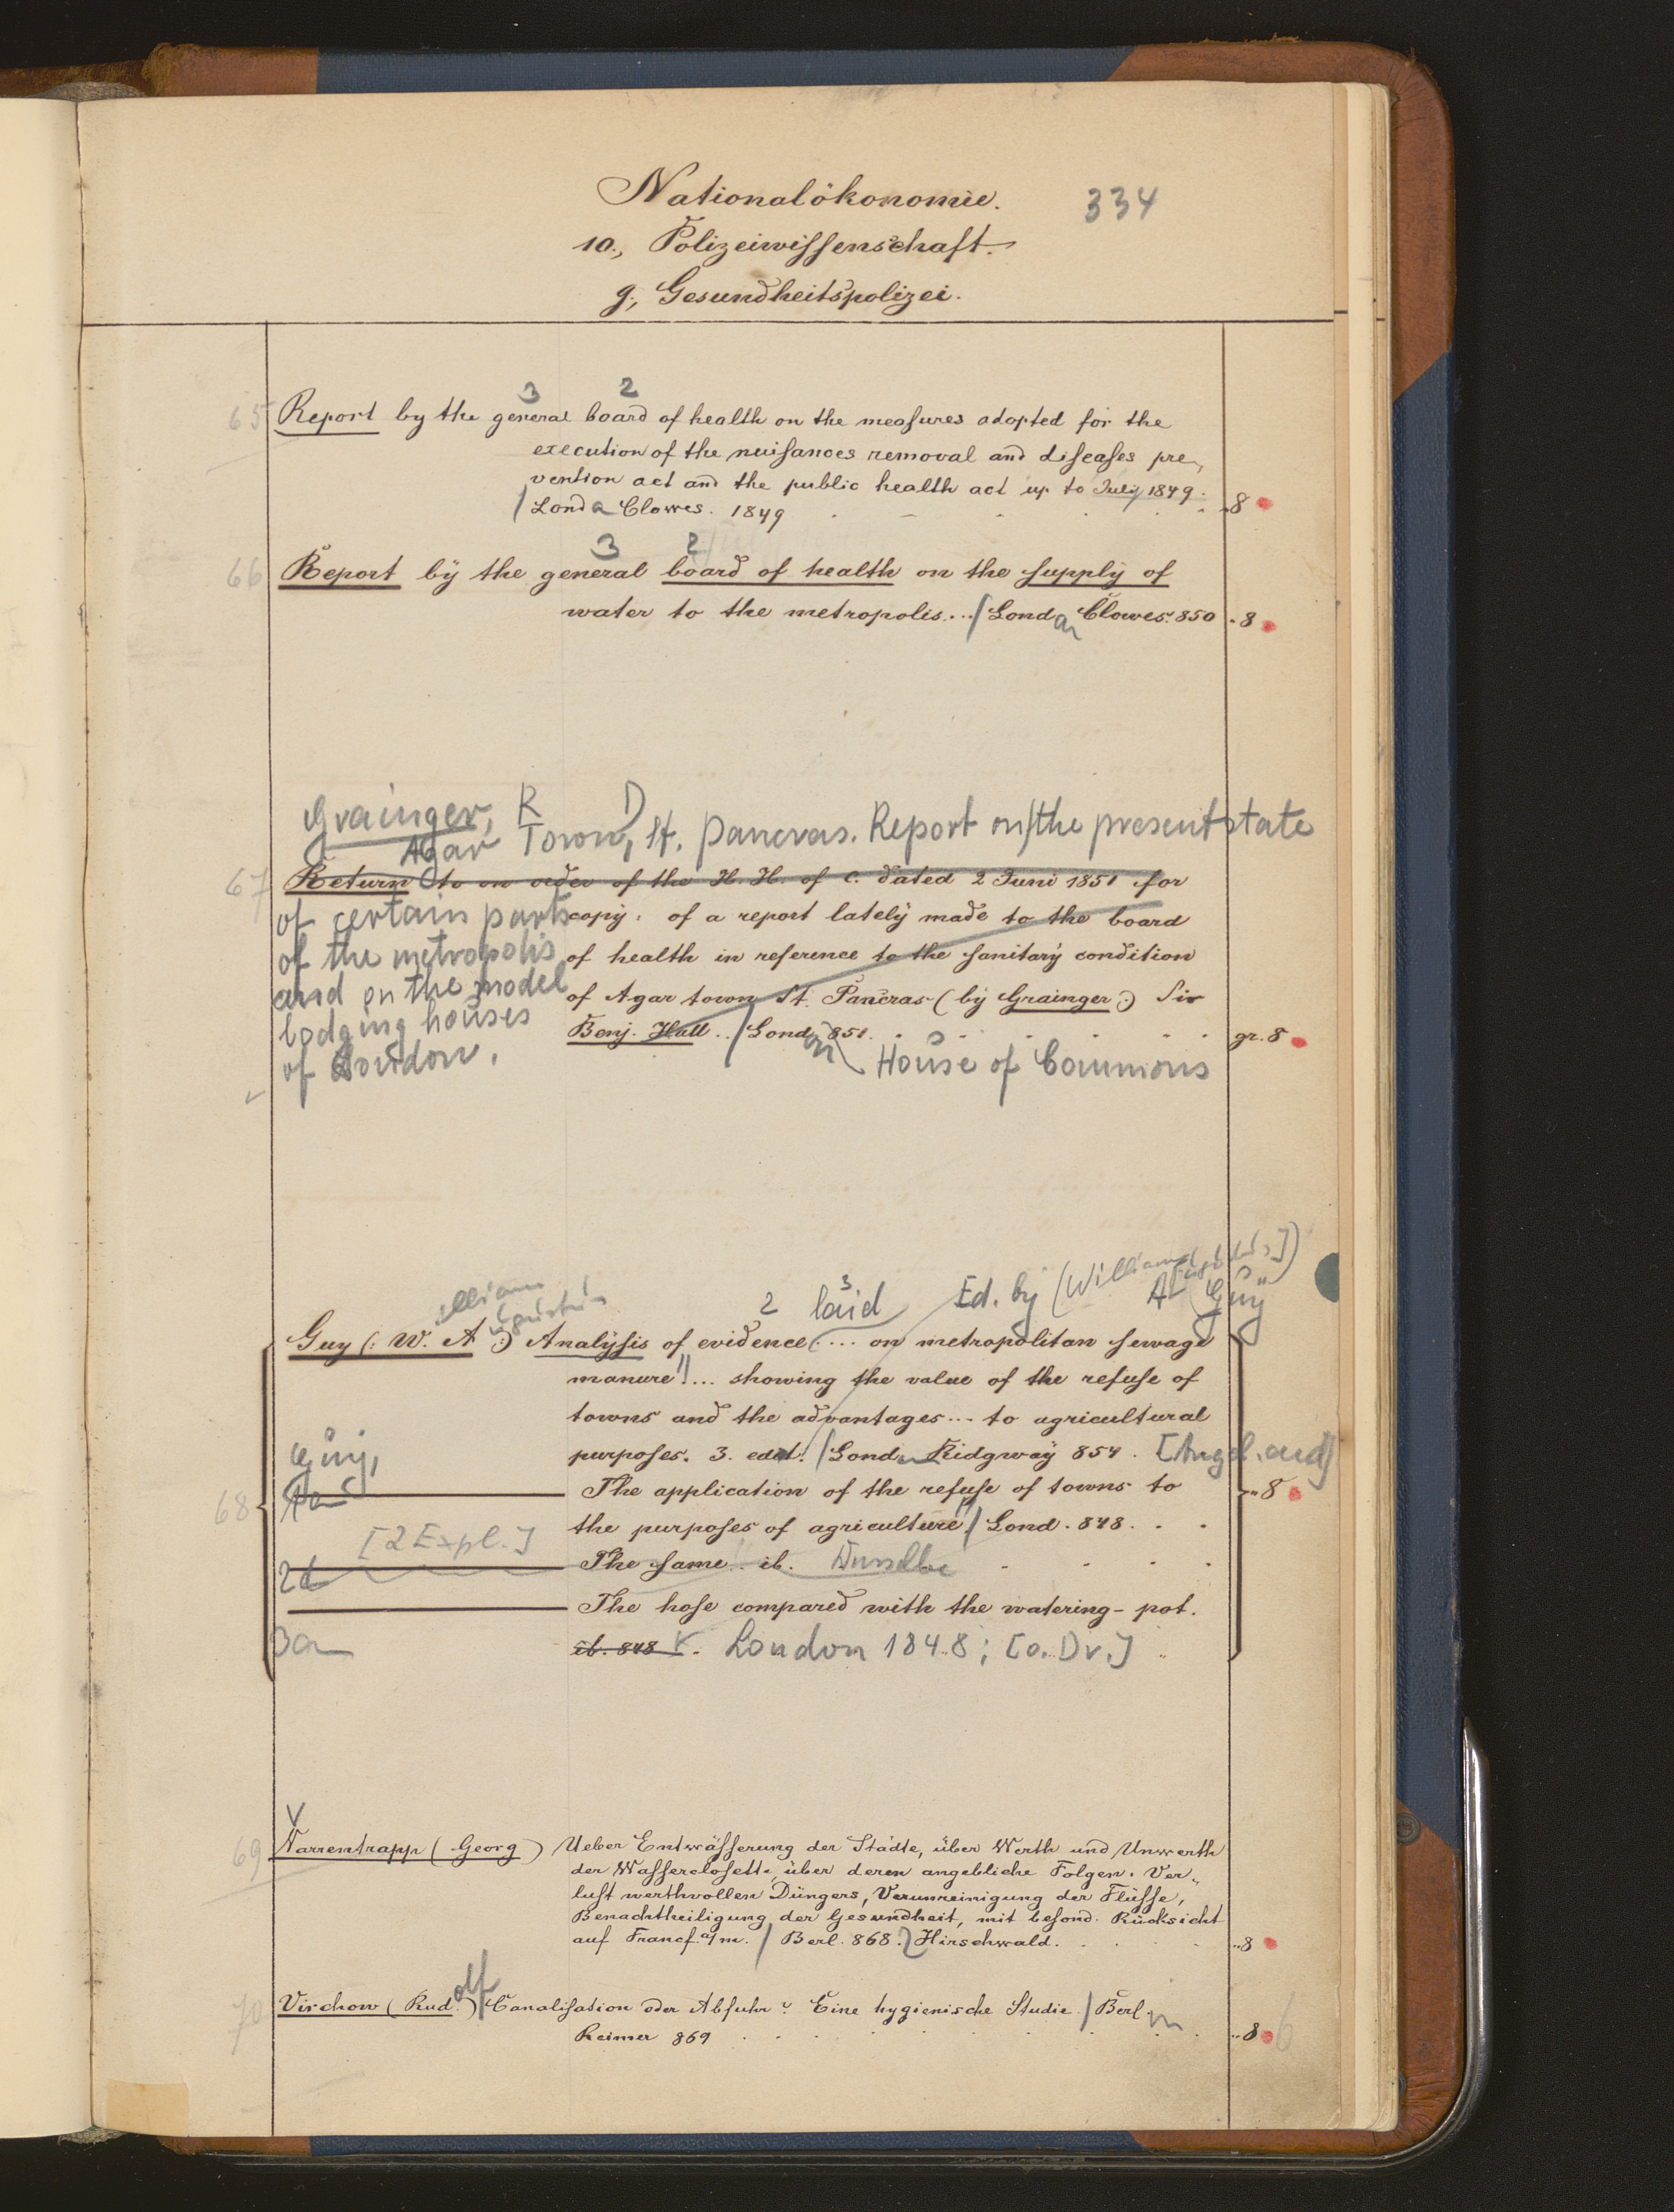 Nationalökonomie.
334
10., Polizeiwissenschaft.
g., Gesundheitspolizei.
3 2
65 Report by the general board of health on the measures adopted for the
execution of the nuisances removal and diseases pre„
vention act and the public health act up to July 1849.
Lond Clowes. 1849 8
3 2
66 Report by the general board of health on the supply of
water to the metropolis... Lond Clowes. 850 8
Grainger, R D
Agar Town, St. Pancras. Report on the present state
67 Return to an order of the H. H. of C. dated 2 Juni 1851 for
of certain parts copy: of a report lately made to the board
of the metropolis of health in reference to the sanitary condition
and on the model of Agar town St. Pancras (by Grainger) Sir
lodging houses Benj. Hall.. Lond 851. gr. 8
of London. House of Commons
illiam
2 3 laid Ed. by (William A Guy
Guy (: W. A :) Analysis of evidence .... on metropolitan sewage
manure ... showing the value of the refuse of
towns and the advantages... to agricultural
Guy, purposes. 3. ed. Lond Ridgway 854.
1a The application of the refuse of towns to
68 the purposes of agriculture Lond. 848. 8
[2 Expl.]
2d The same.. ib. Dasselbe
The hose compared with the watering-pot.
3a ib. 848. London 1848; [o. Dr.]
V
69 Varrentrapp (Georg) Ueber Entwässerung der Städte, über Werth und Unwerth
der Wasserclosette, über deren angebliche Folgen. Ver„
lust werthvollen Düngers, Verunreinigung der Flüsse,
Benachtheiligung der Gesundheit, mit besond. Rücksicht
auf Francf. a/m. Berl. 868. Hirschwald. 8
70 Virchow (Rud.olf) Canalisation oder Abfuhr? Eine hygienische Studie. Berl
Reimer 869 8 6